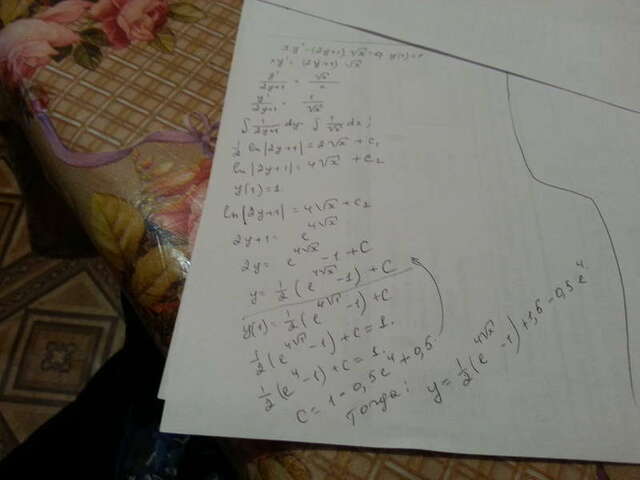 xy' - (2y+1)√x = 0, y(1) = 1
xy' = (2y+1)√x
y'/(2y+1) = √x/x
y'/(2y+1) = 1/√x
∫ 1/(2y+1) dy = ∫ 1/√x dx;
1/2 ln|2y+1| = 2√x + C₁
ln|2y+1| = 4√x + C₂
y(1) = 1
ln|2y+1| = 4√x + C₂
2y+1 = e^(4√x)
2y = e^(4√x) - 1 + C
y = 1/2 (e^(4√x) - 1) + C
y(1) = 1/2 (e^(4√x) - 1) + C
1/2 (e^(4√x) - 1) + C = 1.
1/2 (e^4 - 1) + C = 1.
C = 1 - 0,5e^4 + 0,5.
Тогда: y = 1/2 (e^(4√x) - 1) + 1,5 - 0,5e^4.